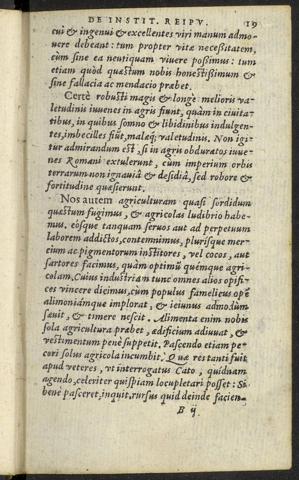 DE INSTIT. REIPV. 19
cui & ingenui & excellentes viri manum admo-
uere debeant: tum propter vitæ neceßitatem,
cùm sine ea neutiquam viuere poßimus: tum
etiam quòd quæstum nobis honestißimum &
sine fallacia ac mendacio præbet.
Certè robusti magis & longè melioris va-
letudinis iuuenes in agris fiunt, quàm in ciuita-
tibus, in quibus somno & libidinibus indulgen-
tes, imbecilles fiũt, malaq; valetudinis. Non igi-
tur admirandum est, si in agris obduratos iuue-
nes Romani extulerunt, cùm imperium orbis
terrarum non ignauiâ & desidiâ, sed robore &
fortitudine quæsierunt.
Nos autem agriculturam quasi sordidum
quæstum fugimus, & agricolas ludibrio habe-
mus, eósque tanquam seruos aut ad perpetuum
laborem addictos, contemnimus, plurísque mer-
cium ac pigmentorum institores, vel cocos, aut
sartores facimus, quàm optimũ quemque agri-
colam. Cuius industriam tunc omnes alios opifi-
ces vincere dicimus, cùm populus famelicus opẽ
alimoniámque implorat, & ieiunus admodùm
sæuit, & timere nescit. Alimenta enim nobis
sola agricultura præbet, ædificium adiuuat, &
vestimentum penè suppetit. Pascendo etiam pe-
cori solus agricola incumbit. Quæ res tanti fuit
apud veteres, vt interrogatus Cato, quidnam
agendo, celeriter quispiam locupletari posset: Si
benè pasceret, inquit. rursus quid deinde facien-
B ij